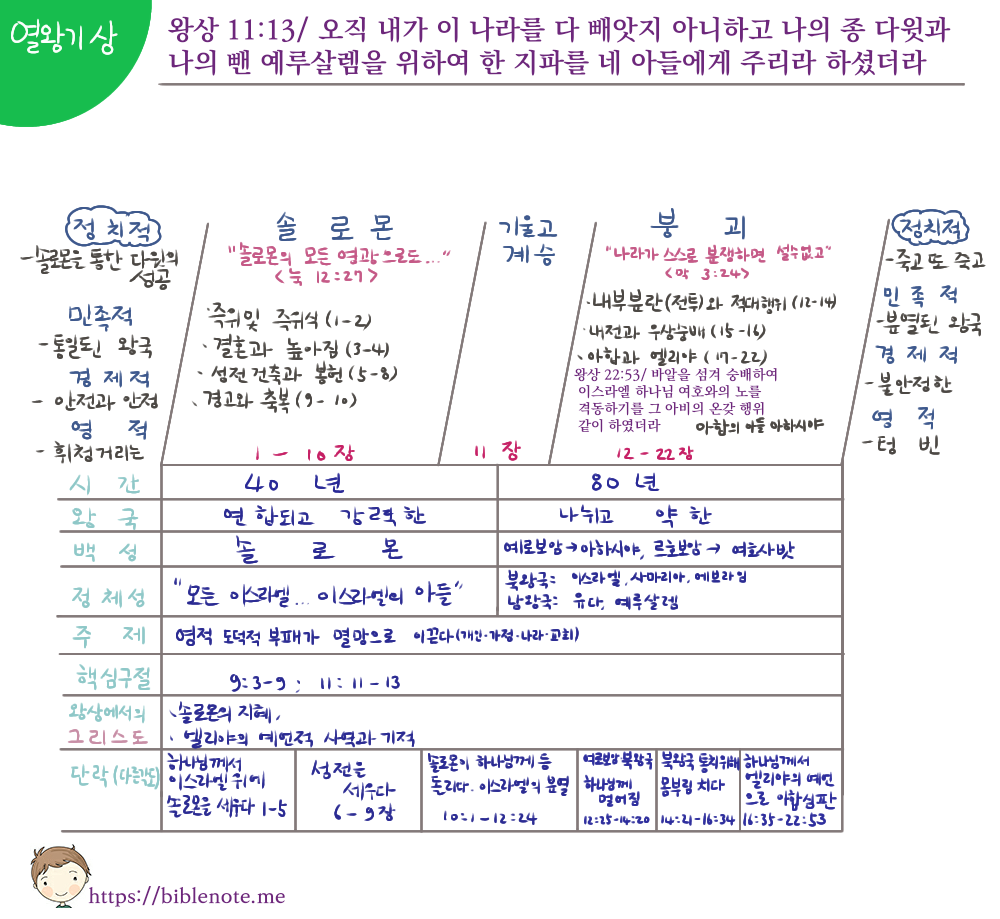 열왕기상
왕상 11:13/ 오직 내가 이 나라를 다 빼앗지 아니하고 나의 종 다윗과
나의 뺀 예루살렘을 위하여 한 지파를 네 아들에게 주리라 하셨더라
정치적
-솔로몬을 통한 다윗의
성공
민족적
-통일된 왕국
경제적
- 안전과 안정
영적
- 휘청거리는
솔로몬
"솔로몬의 모든 영광으로도..."
(눅 12:27)
·즉위및 즉위식 (1-2)
·결혼과 높아짐 (3-4)
·성전건축과 봉헌 (5-8)
·경고와 축복 (9-10)
1-10장
기울고
계승
11장
붕괴
"나라가 스스로 분쟁하면 설수없고"
(막 3:24)
·내부분란(전투)와 적대행위 (12-14)
·내전과 우상숭배 (15-16)
·아합과 엘리야 (17-22)
왕상 22:53/ 바알을 섬겨 숭배하여
이스라엘 하나님 여호와의 노를
격동하기를 그 아비의 온갖 행위
같이 하였더라 아합의 아들 아하시야
12-22장
정치적
-죽고 또 죽고
민족적
-분열된 왕국
경제적
-불안정한
영적
-텅 빈
시간 40년 80년
왕국 연합되고 강력한 나뉘고 약한
백성 솔로몬 여로보암→아하시야, 르호보암→여호사밧
정체성 "모든 이스라엘... 이스라엘의 아들"
북왕국: 이스라엘, 사마리아, 에브라임
남왕국: 유다, 예루살렘
주제 영적 도덕적 부패가 멸망으로 이끈다(개인·가정·나라·교회)
핵심구절 9:3-9; 11:11-13
왕상에서의
그리스도
·솔로몬의 지혜,
·엘리야의 예언적 사역과 기적
단락(다른각도)
하나님께서
이스라엘 위에
솔로몬을 세우다 1-5
성전을
세우다
6-9장
솔로몬이 하나님께 등
돌리다. 이스라엘의 분열
10:1-12:24
여로보암 북왕국
하나님께
멀어짐
12:25-14:20
북왕국 통치위해
몸부림 치다
14:21-16:34
하나님께서
엘리야의 예언
으로 아합심판
16:35-22:53
https://biblenote.me